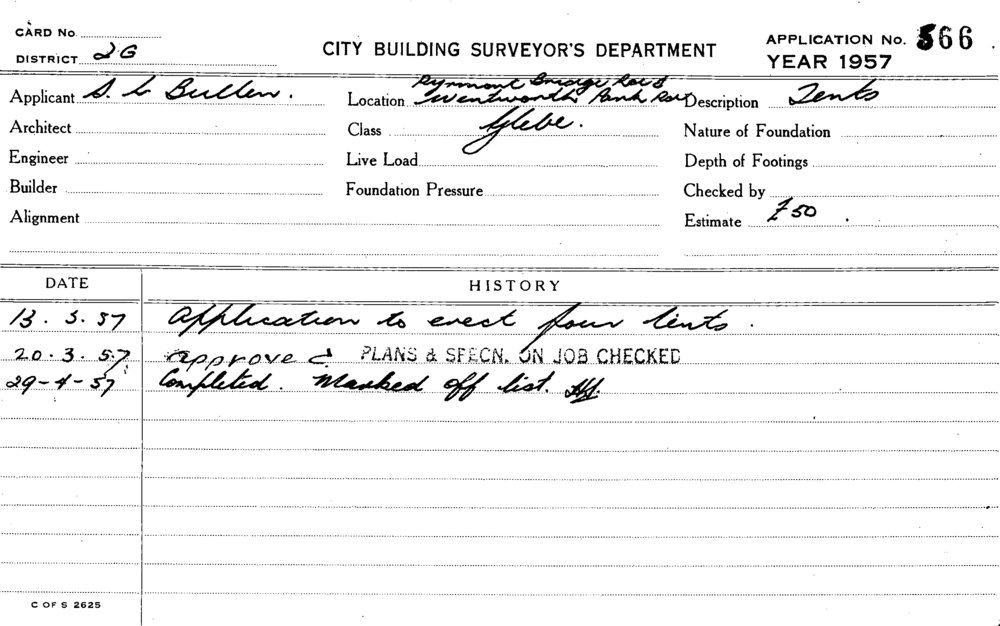 CARD No.
DISTRICT 2G
CITY BUILDING SURVEYOR'S DEPARTMENT
APPLICATION No. 566
YEAR 1957
Applicant S. L Bullen.
Location Pyrmont Bridge Road
Wentworth Park Road
Description Tents
Architect
Class Glebe.
Nature of Foundation
Engineer
Live Load
Depth of Footings
Builder
Foundation Pressure
Checked by
Alignment
Estimate £50.
DATE HISTORY
13.3.57 Application to erect four tents.
20.3.57 approved PLANS & SPECN. ON JOB CHECKED
29-4-57 Completed. Marked off list.
C OF S 2625